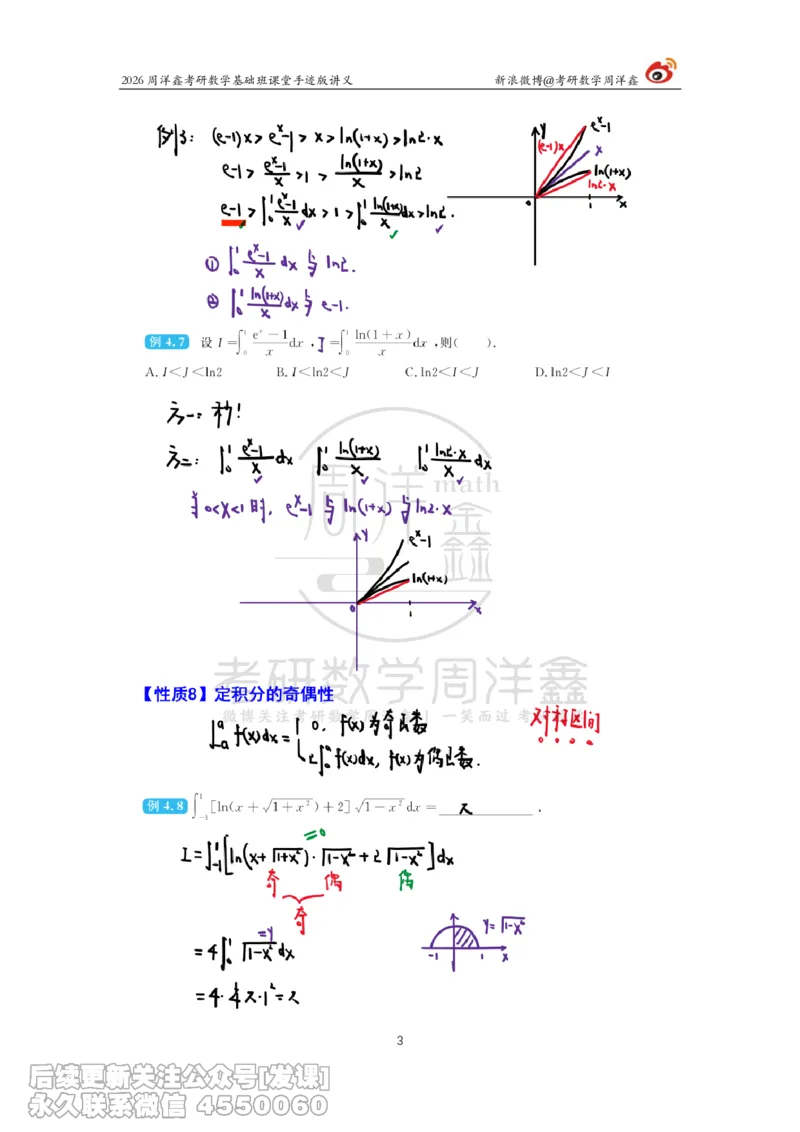 2026周洋鑫考研数学基础班课堂手迹版讲义 新浪微博@考研数学周洋鑫
例3: (e-1)x > e^x-1 > x > ln(1+x) > ln2·x
e-1 > (e^x-1)/x > 1 > ln(1+x)/x > ln2
e-1 > ∫₀¹ (e^x-1)/x dx > 1 > ∫₀¹ ln(1+x)/x dx > ln2.
y
e^x-1
(e-1)x
x
ln(1+x)
ln2·x
0 1 x
① ∫₀¹ (e^x-1)/x dx 与 ln2.
② ∫₀¹ ln(1+x)/x dx 与 e-1.
例 4.7 设 I=∫₀¹ (e^x-1)/x dx, J=∫₀¹ ln(1+x)/x dx, 则( ).
A. I<J<ln2 B. I<ln2<J C. ln2<I<J D. ln2<J<I
方一: 秒!
方二: ∫₀¹ (e^x-1)/x dx ∫₀¹ ln(1+x)/x ∫₀¹ ln2·x/x dx
当0<x<1时, e^x-1 与 ln(1+x) 与 ln2·x
y
e^x-1
ln(1+x)
0 1 x
周洋鑫
math
考研数学周洋鑫
【性质8】定积分的奇偶性
∫₋ₐᵃ f(x)dx = { 0, f(x)为奇函数
2∫₀ᵃ f(x)dx, f(x)为偶函数.
对称区间
例 4.8 ∫₋₁¹ [ln(x+√(1+x²))+2]√(1-x²) dx = π .
=0
I=∫₋₁¹[ln(x+√(1+x²))·√(1-x²)+2√(1-x²)]dx
奇 偶 偶
奇
=y
=4∫₀¹ √(1-x²) dx
y=√(1-x²)
-1 1 x
=4·¼π·1²=π
3
后续更新关注公众号[发课]
永久联系微信 4550060